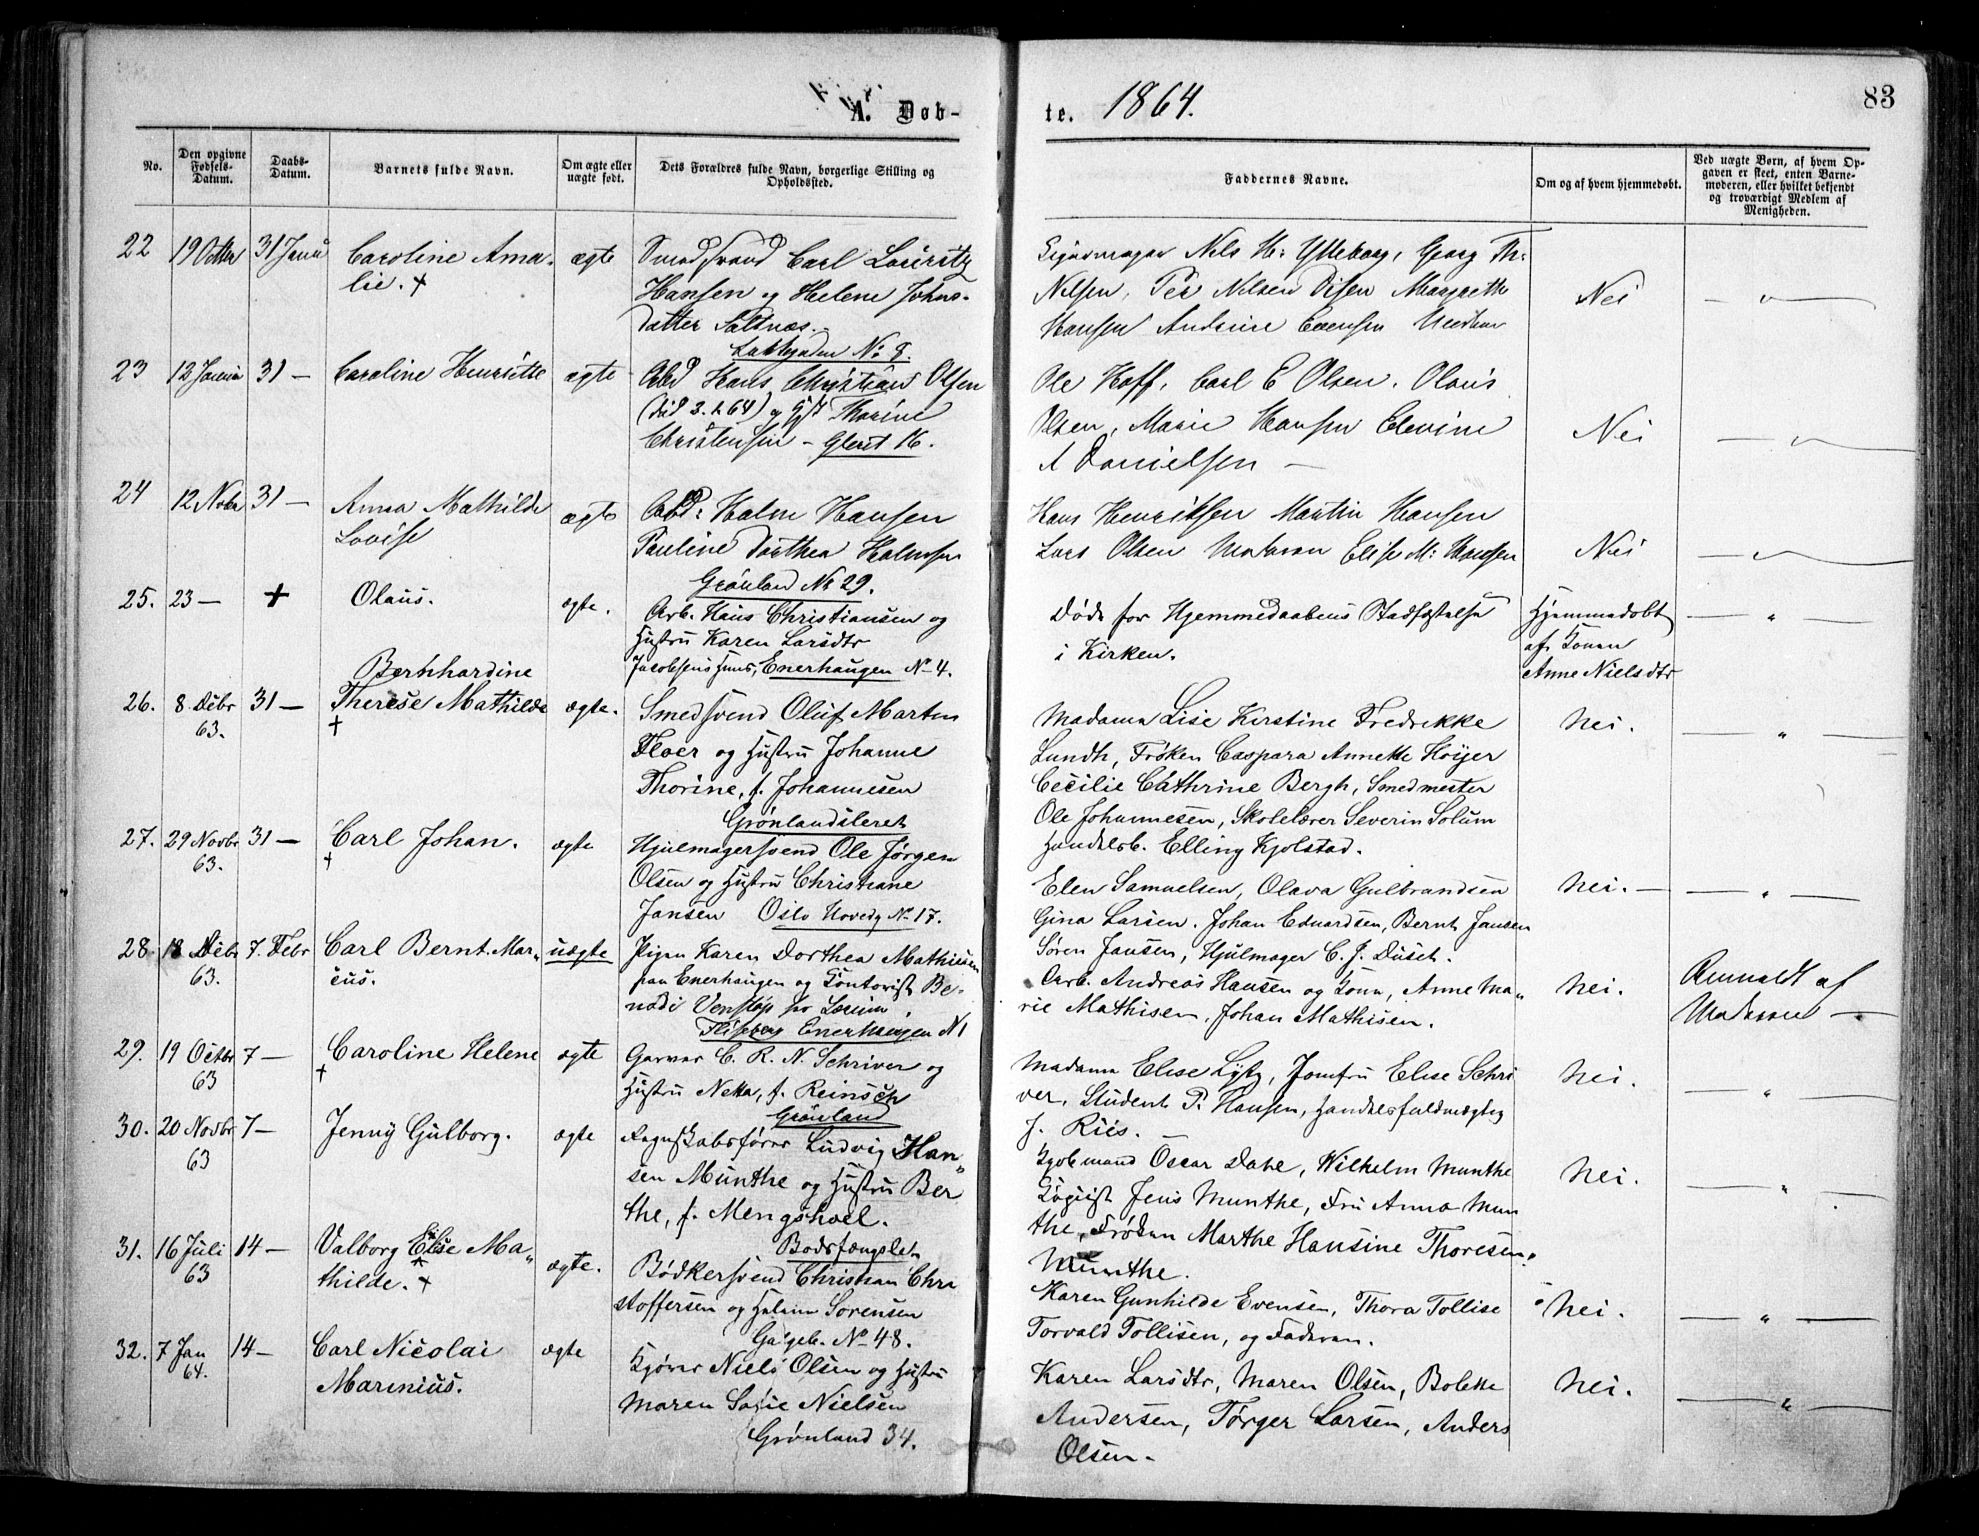 A. Døb-
te. 1864.
83
No.
Den opgivne Fødsels-Datum.
Daabs-Datum.
Barnets fulde Navn.
Om ægte eller uægte født.
Dets Forældres fulde Navn, borgerlige Stilling og Opholdssted.
Faddernes Navne.
Om og af hvem hjemmedøbt.
Ved uægte Børn, af hvem Op-
gaven er skeet, enten Barne-
moderen, eller hvilket bekjendt
og troværdigt Medlem af
Menigheden.
22 19 Octbr 31 Janu Caroline Ama- ægte Smedsvend Carl Lauritz
lie. + Hansen og Helene Johns-
datter Saltnæs.
No 8.
Nels H: Ytteborg, Georg Th:
Nilsen, Per Nilsen Disen Margrethe
Hansen Andrine Evensen
Nei
23 12 Januar 31 — Caroline Henriette ægte Arbd Hans Christian Olsen
(død 3.1.64) og Thorine
Christensen - Gleret 16.
Ole Hoff, Carl E Olsen. Olaus
Olsen, Marie Hansen Elevine
A Danielsen —
Nei
24 12 Novbr 31 — Anna Mathilde ægte Arbd: Halm Hansen
Lovise Pauline Dorthea Halmsen
Grønland No 29.
Hans Henriksen Martin Hansen
Lars Olsen Moderen Elise M: Hansen
Nei
25. 23 — + Olaus. ægte. Arb. Hans Christiansen og
Hustru Karen Larsdtr
Jacobsens Huus, Enerhaugen No 4.
Døde før Hjemmedaabens Stadfæstelse
i Kirken.
Hjemmedøbt
af Konen
Anne Nielsdtr
Bernhardine
26. 8 Debr 31 — Therese Mathilde ægte. Smedsvend Oluf Marten
63. + Floer og Hustru Johanne
Thorine, f. Johannesen
Grønlandsleret
Madame Lise Kirstine Fredrekke
Lundh, Frøken Caspara Annette Høyer
Cecilie Cathrine Bergh, Smedmester
Ole Johannesen, Skolelærer Severin Solum
Handelsb. Elling Kjolstad.
Nei.
27. 29 Novbr 31 — Carl Johan. ægte Hjulmagersvend Ole Jørgen
63. + Olsen og Hustru Christiane
Jansen Oslo Hovedg No 17.
Elen Samuelsen, Olava Gulbrandsen
Gina Larsen, Johan Eduardsen, Bernt Jansen
Søren Jansen, Hjulmager C. J. Duset.
Nei. —
28. 18 Debr 7. Febr Carl Bernt Mar- uægte Pigen Karen Dorthea Mathisen
63. cus. paa Enerhaugen og Contorist Be-
nadi Venstøp
Enerhaugen N 1
Arb. Andreas Hansen og Kone, Anne Ma-
rie Mathisen, Johan Mathisen.
Nei.
Anmeldt af
Moderen —
29. 19 Octbr 7 — Caroline Helene ægte Garver C. R. N. Schriver og
63 + Hustru Netta, f. Reinsch
Grønland
Madame Elise Lytz, Jomfru Elise Schri
ver, Student P. Hansen, Handelsfuldmægtig
J. Riis.
Nei.
30. 20 Novbr 7 — Jenny Gulborg. ægte Regnskabsfører Ludvig Han-
63 sen Munthe og Hustru Ber
the, f. Mengshoel.
Bodsfængslet
Kjøbmand Oscar Dahl, Wilhelm Munthe
Jens Munthe, Fru Anna Mun
the, Frøken Marthe Hansine Thoresen
Munthe.
Nei.
31. 16 Juli 14 — Valborg Elise Ma- ægte. Bødkersvend Christian Chri
63 thilde. + stoffersen og Sørensen
No 48.
Karen Gunhilde Evensen, Thora Tollise
Torvald Tollisen, og Faderen.
Nei.
32. 7 Jan 14 — Carl Nicolai ægte Kjører Niels Olsen og Hustru
64. Marinius. Maren Sofie Nielsen
Grønland 34.
Karen Larsdtr, Maren Olsen, Bolette
Andersen, Tørger Larsen, Anders
Olsen.
Nei.